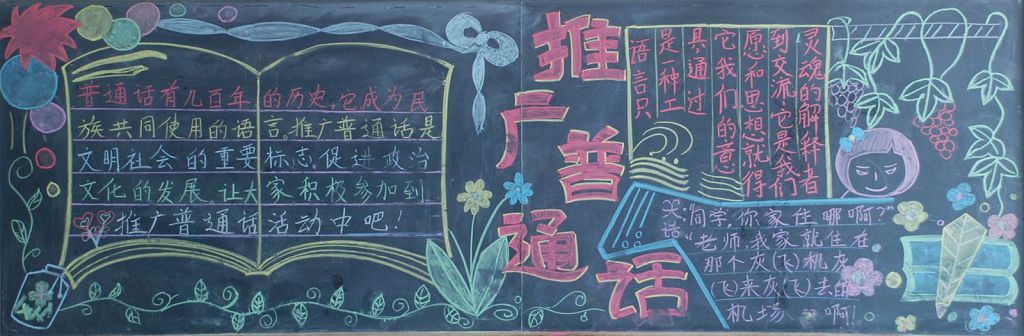 普通话有几百年的历史,它成为民
族共同使用的语言,推广普通话是
文明社会的重要标志,促进政治
文化的发展,让大家积极参加到
推广普通话活动中吧!
推广普通话
语言只
是一种工
具通过
它我们的意
愿和思想就得
到交流,它是我们
灵魂的解释者
笑话:"同学,你家住哪啊?"
"老师,我家就住在
那个灰(飞)机灰
(飞)来灰(飞)去的
机场啊!